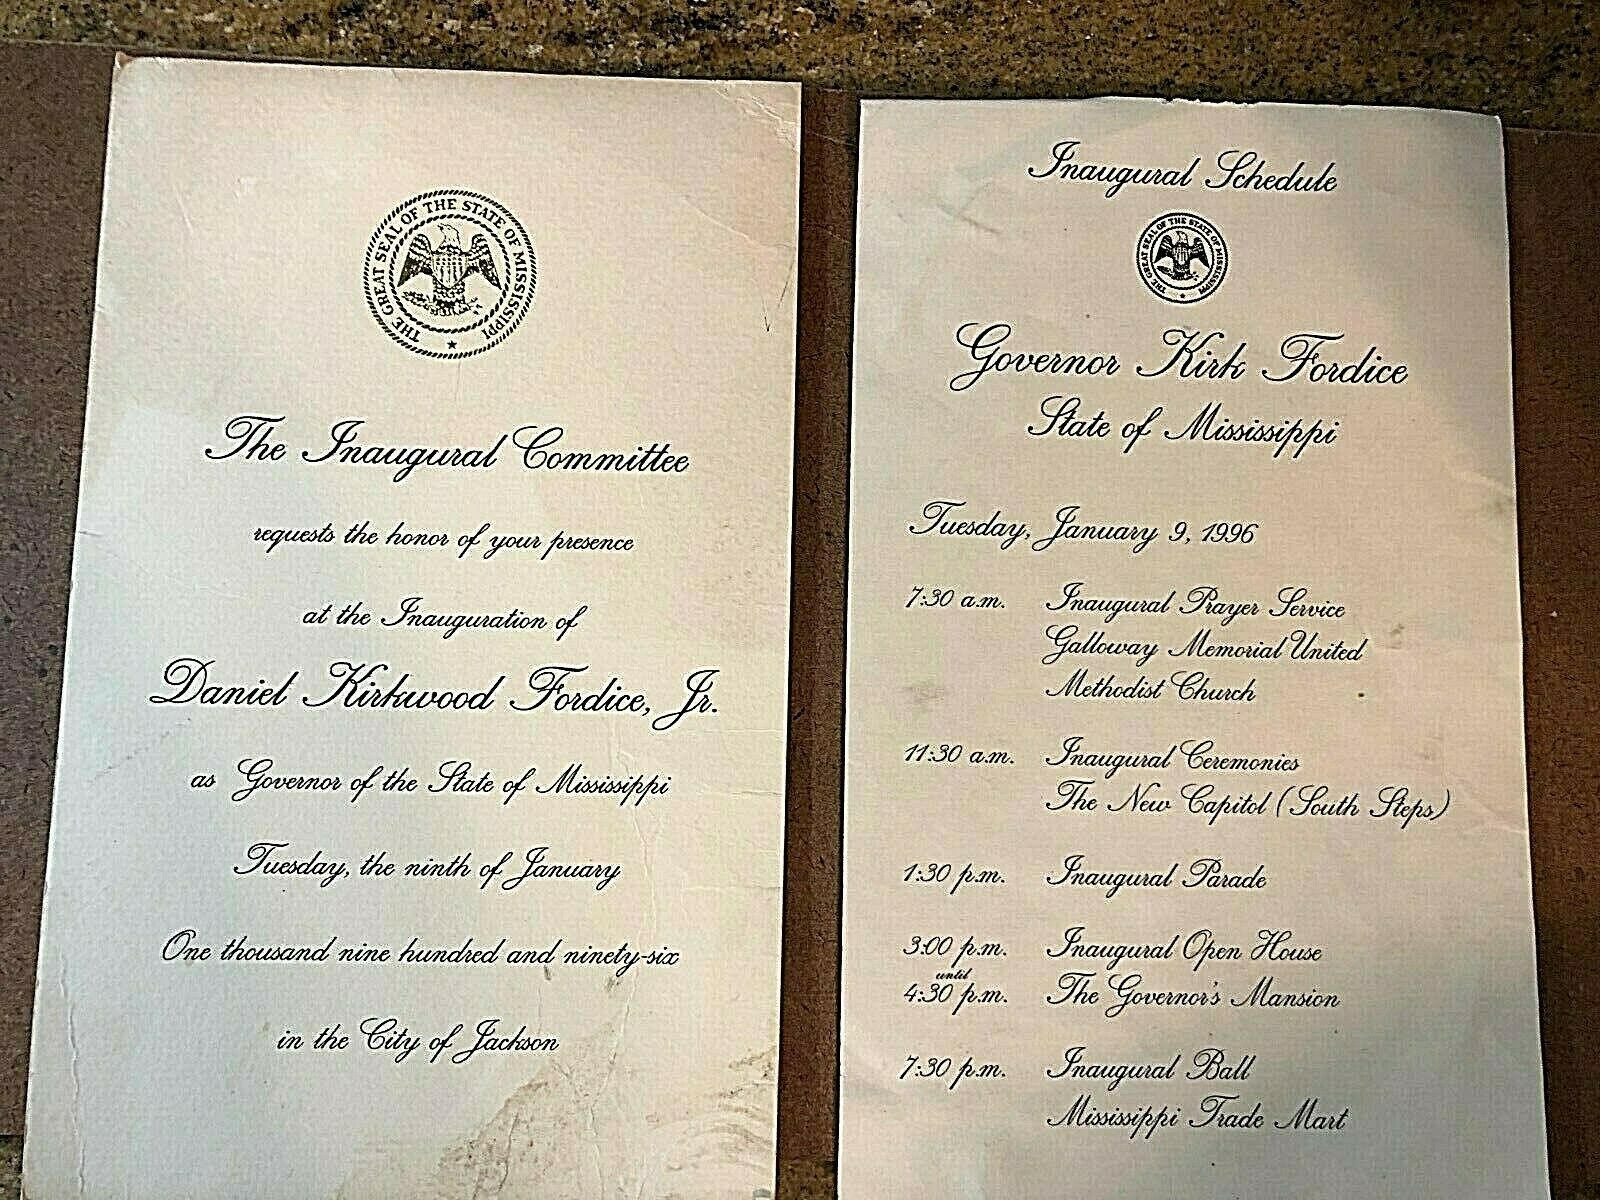 THE GREAT SEAL OF THE STATE OF MISSISSIPPI
The Inaugural Committee
requests the honor of your presence
at the Inauguration of
Daniel Kirkwood Fordice, Jr.
as Governor of the State of Mississippi
Tuesday, the ninth of January
One thousand nine hundred and ninety-six
in the City of Jackson
Inaugural Schedule
THE GREAT SEAL OF THE STATE OF MISSISSIPPI
Governor Kirk Fordice
State of Mississippi
Tuesday, January 9, 1996
7:30 a.m. Inaugural Prayer Service
Galloway Memorial United
Methodist Church
11:30 a.m. Inaugural Ceremonies
The New Capitol (South Steps)
1:30 p.m. Inaugural Parade
3:00 p.m. Inaugural Open House
until
4:30 p.m. The Governor's Mansion
7:30 p.m. Inaugural Ball
Mississippi Trade Mart